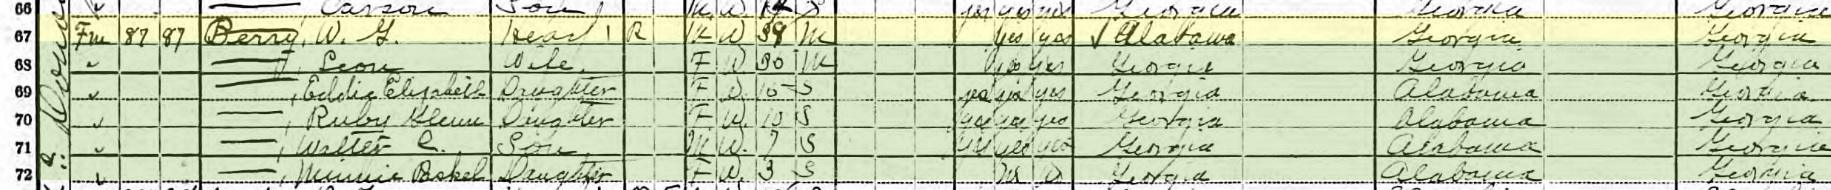 66 Carson Son M W S yes yes yes Georgia Georgia Georgia
67 Fm 87 87 Berry, W. G. Head 1 R M W 39 M yes yes Alabama Georgia Georgia
68 Leon Wife F W 30 M yes yes Georgia Georgia Georgia
69 Eddie Elizabeth Daughter F W S yes yes yes Georgia Alabama Georgia
70 Ruby Daughter F W 10 S yes yes yes Georgia Alabama Georgia
71 Walter C. Son M W 7 S yes yes yes Georgia Alabama Georgia
72 Minnie Daughter F W 3 S Georgia Alabama Georgia